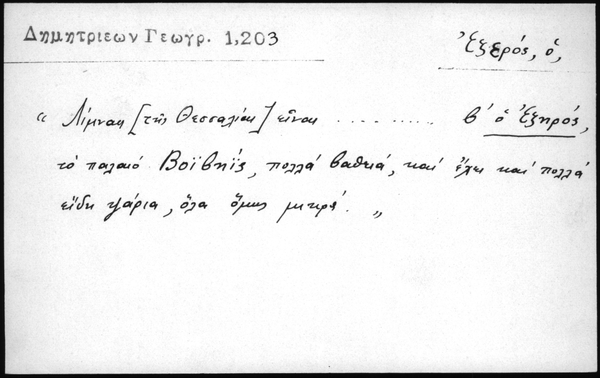 Δημητριεων Γεωγρ. 1,203
Ἐξερός, ὁ,
“ Λίμναι [τῆς Θεσσαλίας] εἶναι .......... β' ὁ Ἐξηρός,
τὸ παλαιό Βοϊβηΐς, πολλά βαθειά, καί ἔχει καί πολλά
εἴδη ψάρια, ὅλα ὅμως μικρά. „